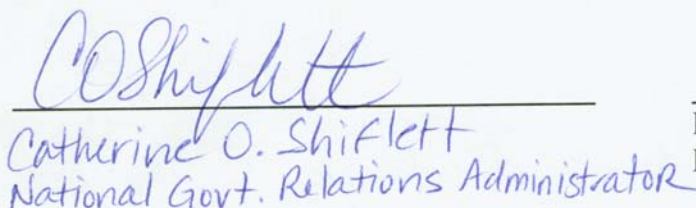 COShiflett
Catherine O. Shiflett
National Govt. Relations Administrator